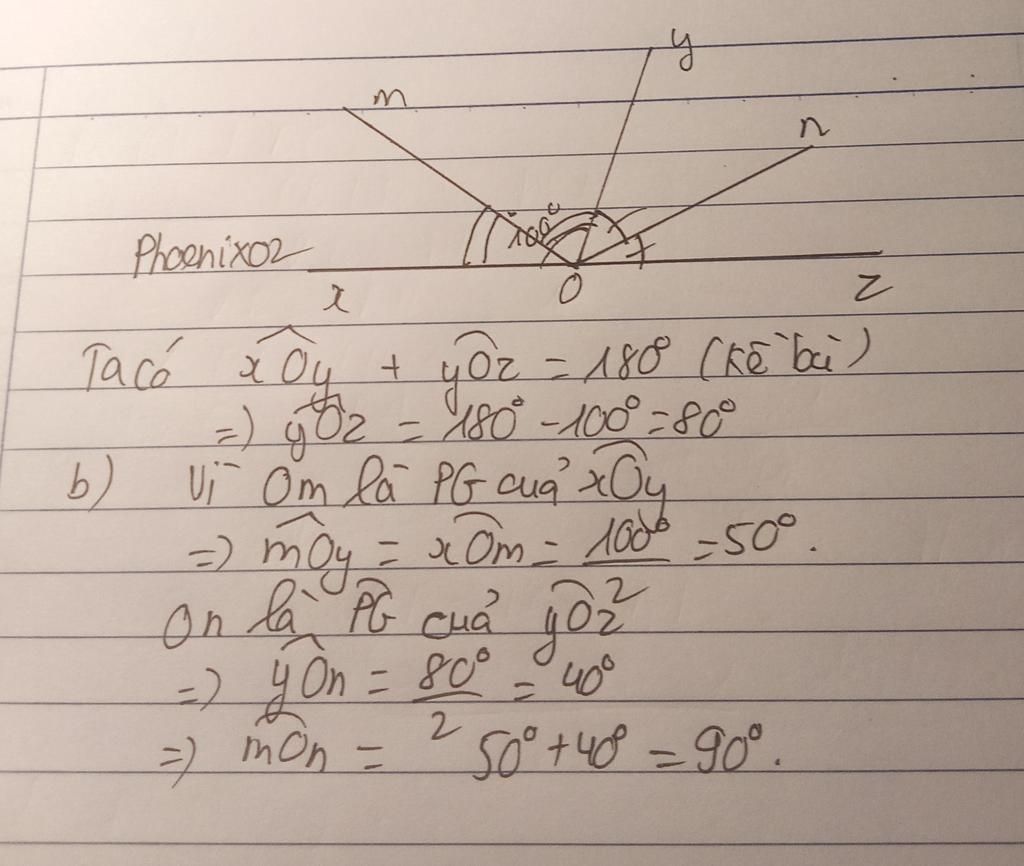 y
m
n
100°
Phoenix02
x
O
z
Ta có xOy + yOz = 180° (kề bù)
=) yOz = 180° - 100° = 80°
b) Vì Om là PG của xOy
=) mOy = xOm = 100°/2 = 50°.
On là PG của yOz
=) yOn = 80°/2 = 40°
=) mOn = 50° + 40° = 90°.